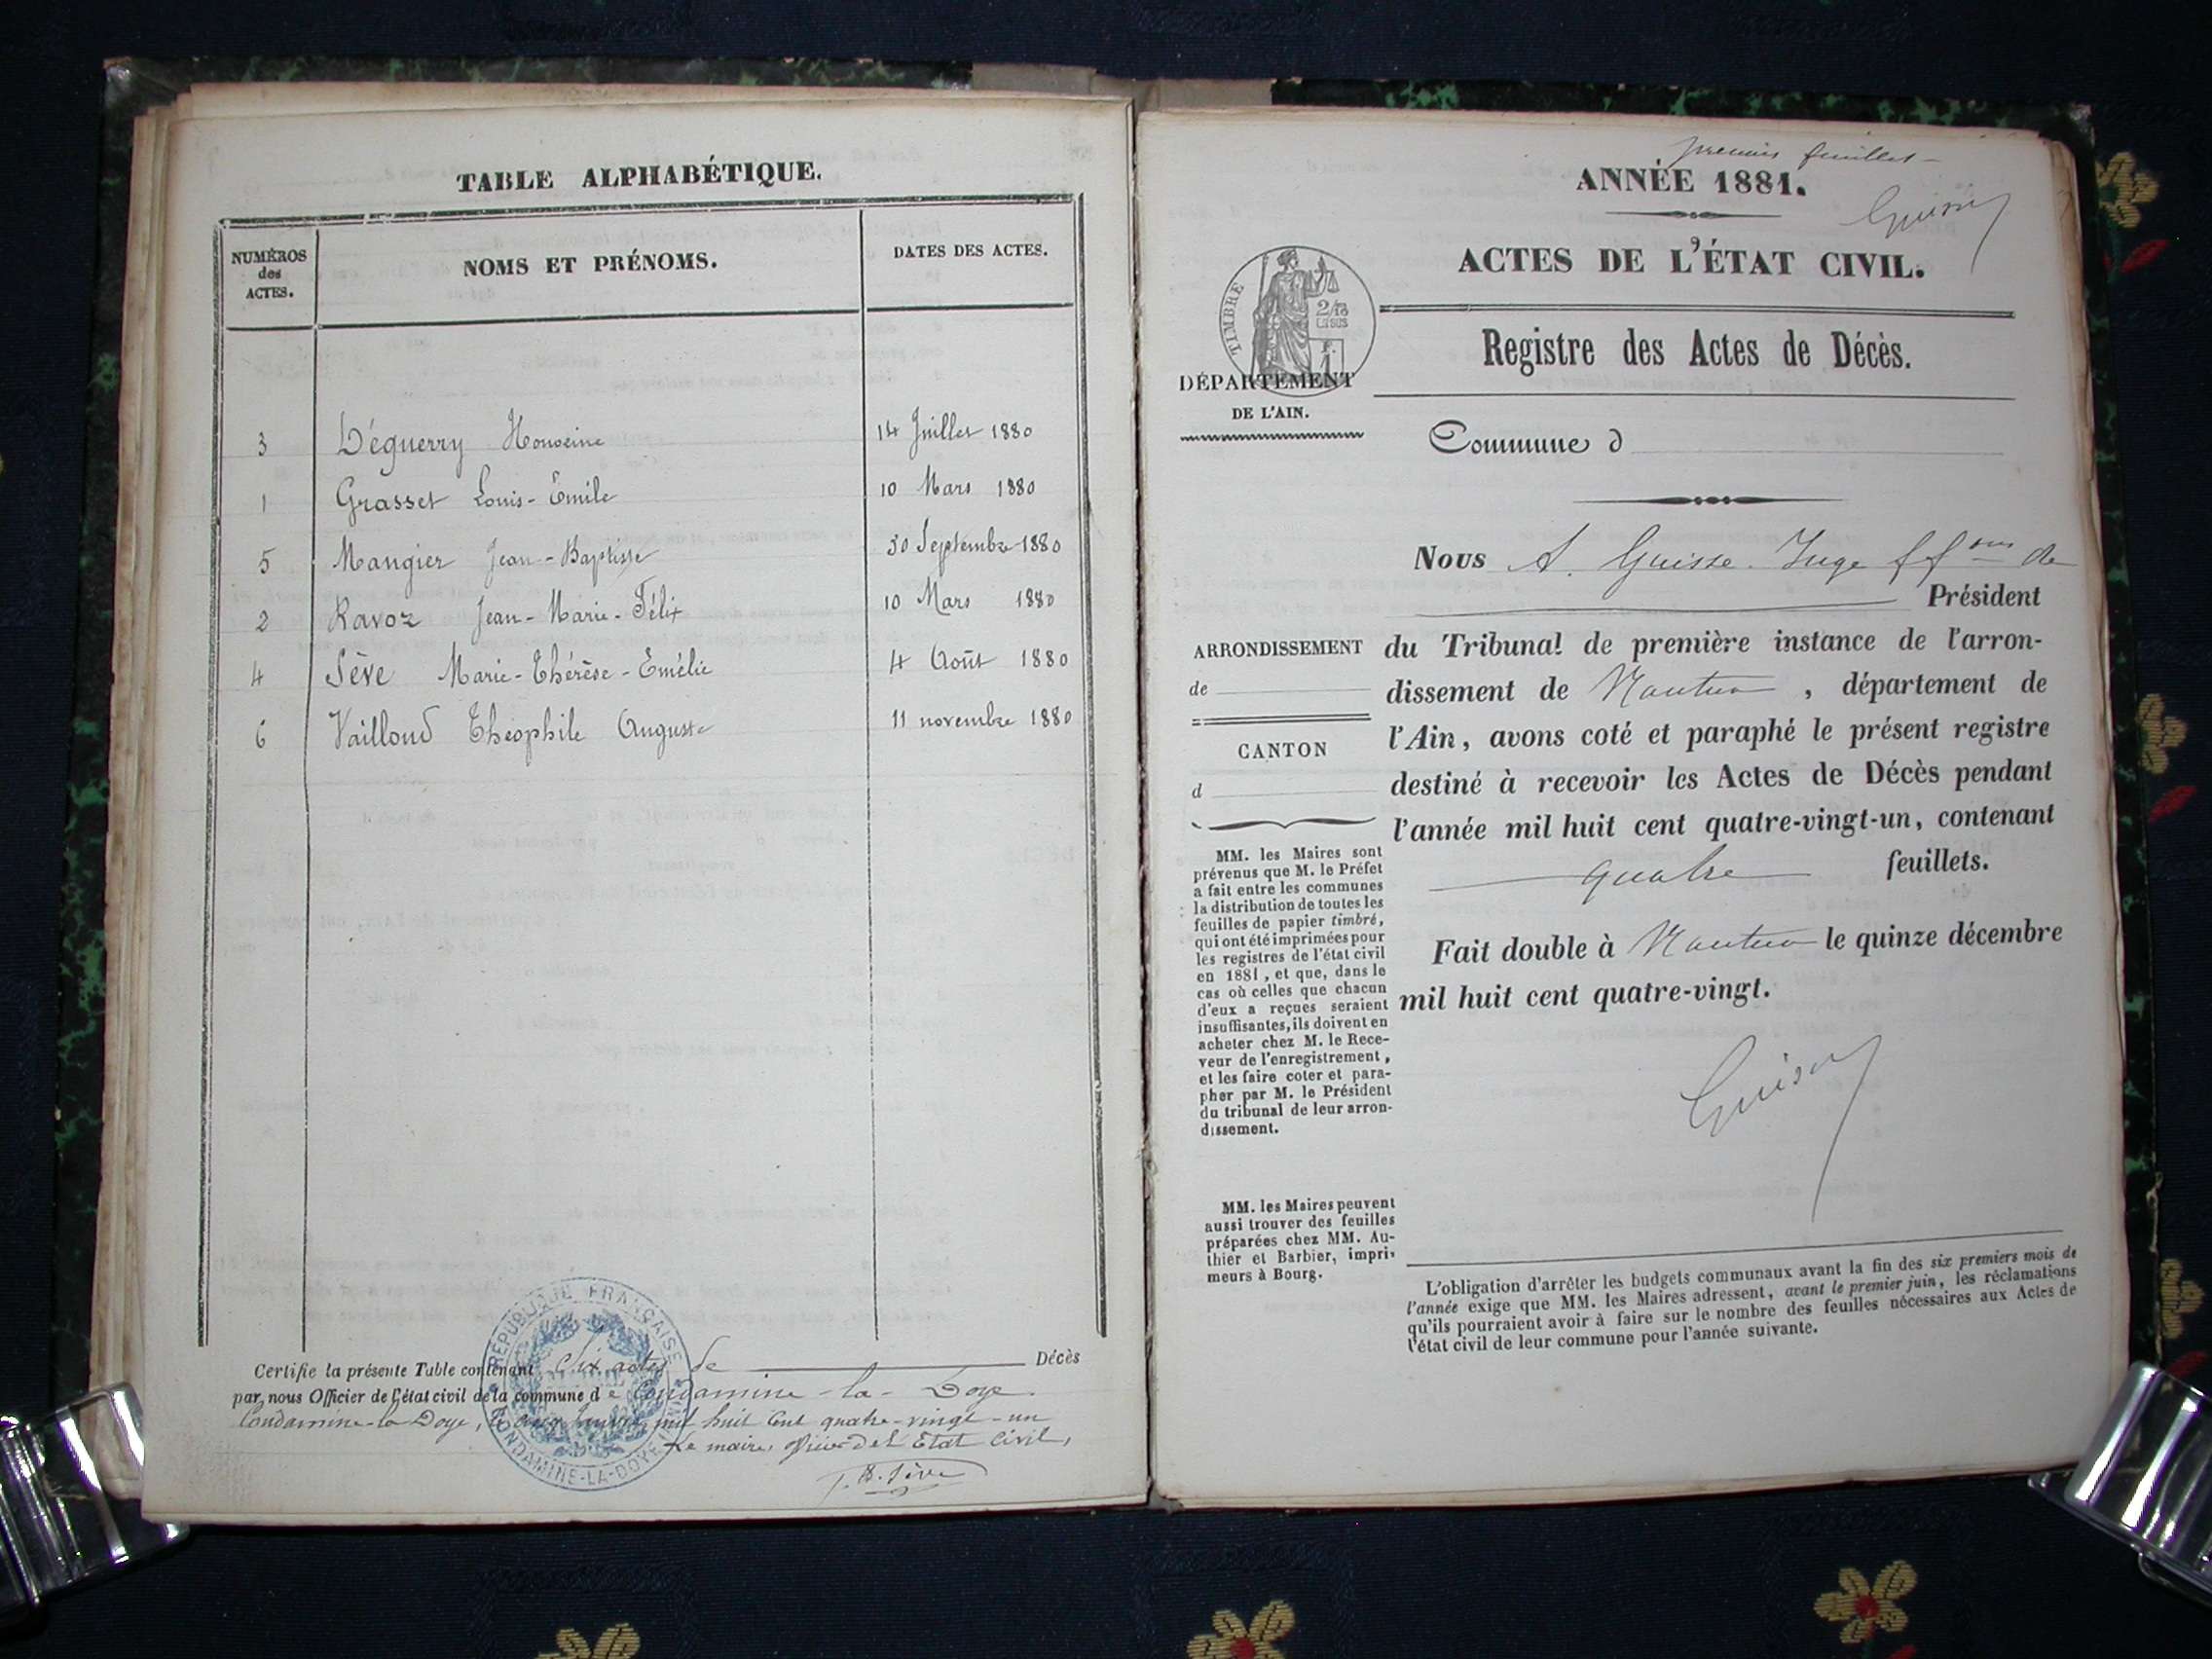 TABLE ALPHABÉTIQUE.
NUMÉROS
des
ACTES.
NOMS ET PRÉNOMS.
DATES DES ACTES.
3 Déguerry Honorine 14 Juillet 1880
1 Grasset Louis-Émile 10 Mars 1880
5 Mangier Jean-Baptiste 30 Septembre 1880
2 Ravoz Jean-Marie-Félix 10 Mars 1880
4 Sève Marie-Thérèse-Émélie 4 Août 1880
6 Vailloud Théophile Auguste 11 novembre 1880
Certifie la présente Table contenant Six actes de Décès
par nous Officier de l'état civil de la commune de Condamine-la-Doye.
Condamine-la Doye, mil huit cent quatre-vingt-un
Le maire, officier de l'Etat civil,
J. B. Sève
RÉPUBLIQUE FRANÇAISE
CONDAMINE-LA-DOYE (AIN)
premier feuillet
ANNÉE 1881.
ACTES DE L'ÉTAT CIVIL.
TIMBRE
Registre des Actes de Décès.
DÉPARTEMENT
DE L'AIN.
Commune d
Nous A. Guisse Juge ff ons de
Président
du Tribunal de première instance de l'arron-
dissement de Nantua, département de
l'Ain, avons coté et paraphé le présent registre
destiné à recevoir les Actes de Décès pendant
l'année mil huit cent quatre-vingt-un, contenant
quatre feuillets.
Fait double à Nantua le quinze décembre
mil huit cent quatre-vingt.
ARRONDISSEMENT
de
CANTON
d
MM. les Maires sont
prévenus que M. le Préfet
a fait entre les communes
la distribution de toutes les
feuilles de papier timbré,
qui ont été imprimées pour
les registres de l'état civil
en 1881, et que, dans le
cas où celles que chacun
d'eux a reçues seraient
insuffisantes, ils doivent en
acheter chez M. le Rece-
veur de l'enregistrement,
et les faire coter et para-
pher par M. le Président
du tribunal de leur arron-
dissement.
MM. les Maires peuvent
aussi trouver des feuilles
préparées chez MM. Au-
thier et Barbier, impri-
meurs à Bourg.
L'obligation d'arrêter les budgets communaux avant la fin des six premiers mois de
l'année exige que MM. les Maires adressent, avant le premier juin, les réclamations
qu'ils pourraient avoir à faire sur le nombre des feuilles nécessaires aux Actes de
l'état civil de leur commune pour l'année suivante.